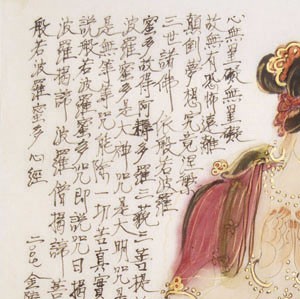 心無罣礙無罣礙
故無有恐怖遠離
顛倒夢想究竟涅槃
三世諸佛依般若波羅
蜜多故得阿耨多羅三藐三菩提
波羅蜜多是大神咒是大明咒是
無等等咒能除一切苦真實
說般若波羅蜜多咒即說咒曰揭
波羅揭諦波羅僧揭諦菩
般若波羅蜜多心經